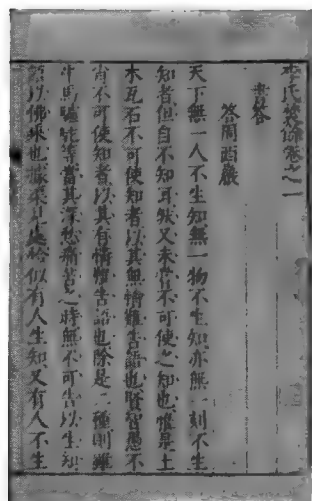 李氏焚餘卷之一
書答
答周西巖
天下無一人不生知無一物不生知亦無一刻不生
知者但自不知耳然又未嘗不可使之知也惟是土
木瓦石不可使知者以其無情難告語也賢智愚不
肖不可使知者以其有情難告語也除是二種則雖
牛馬驢駝等當其深愁痛苦之時無不可告以生知
語以佛乘也據渠見處恰似有人生知又有人不生